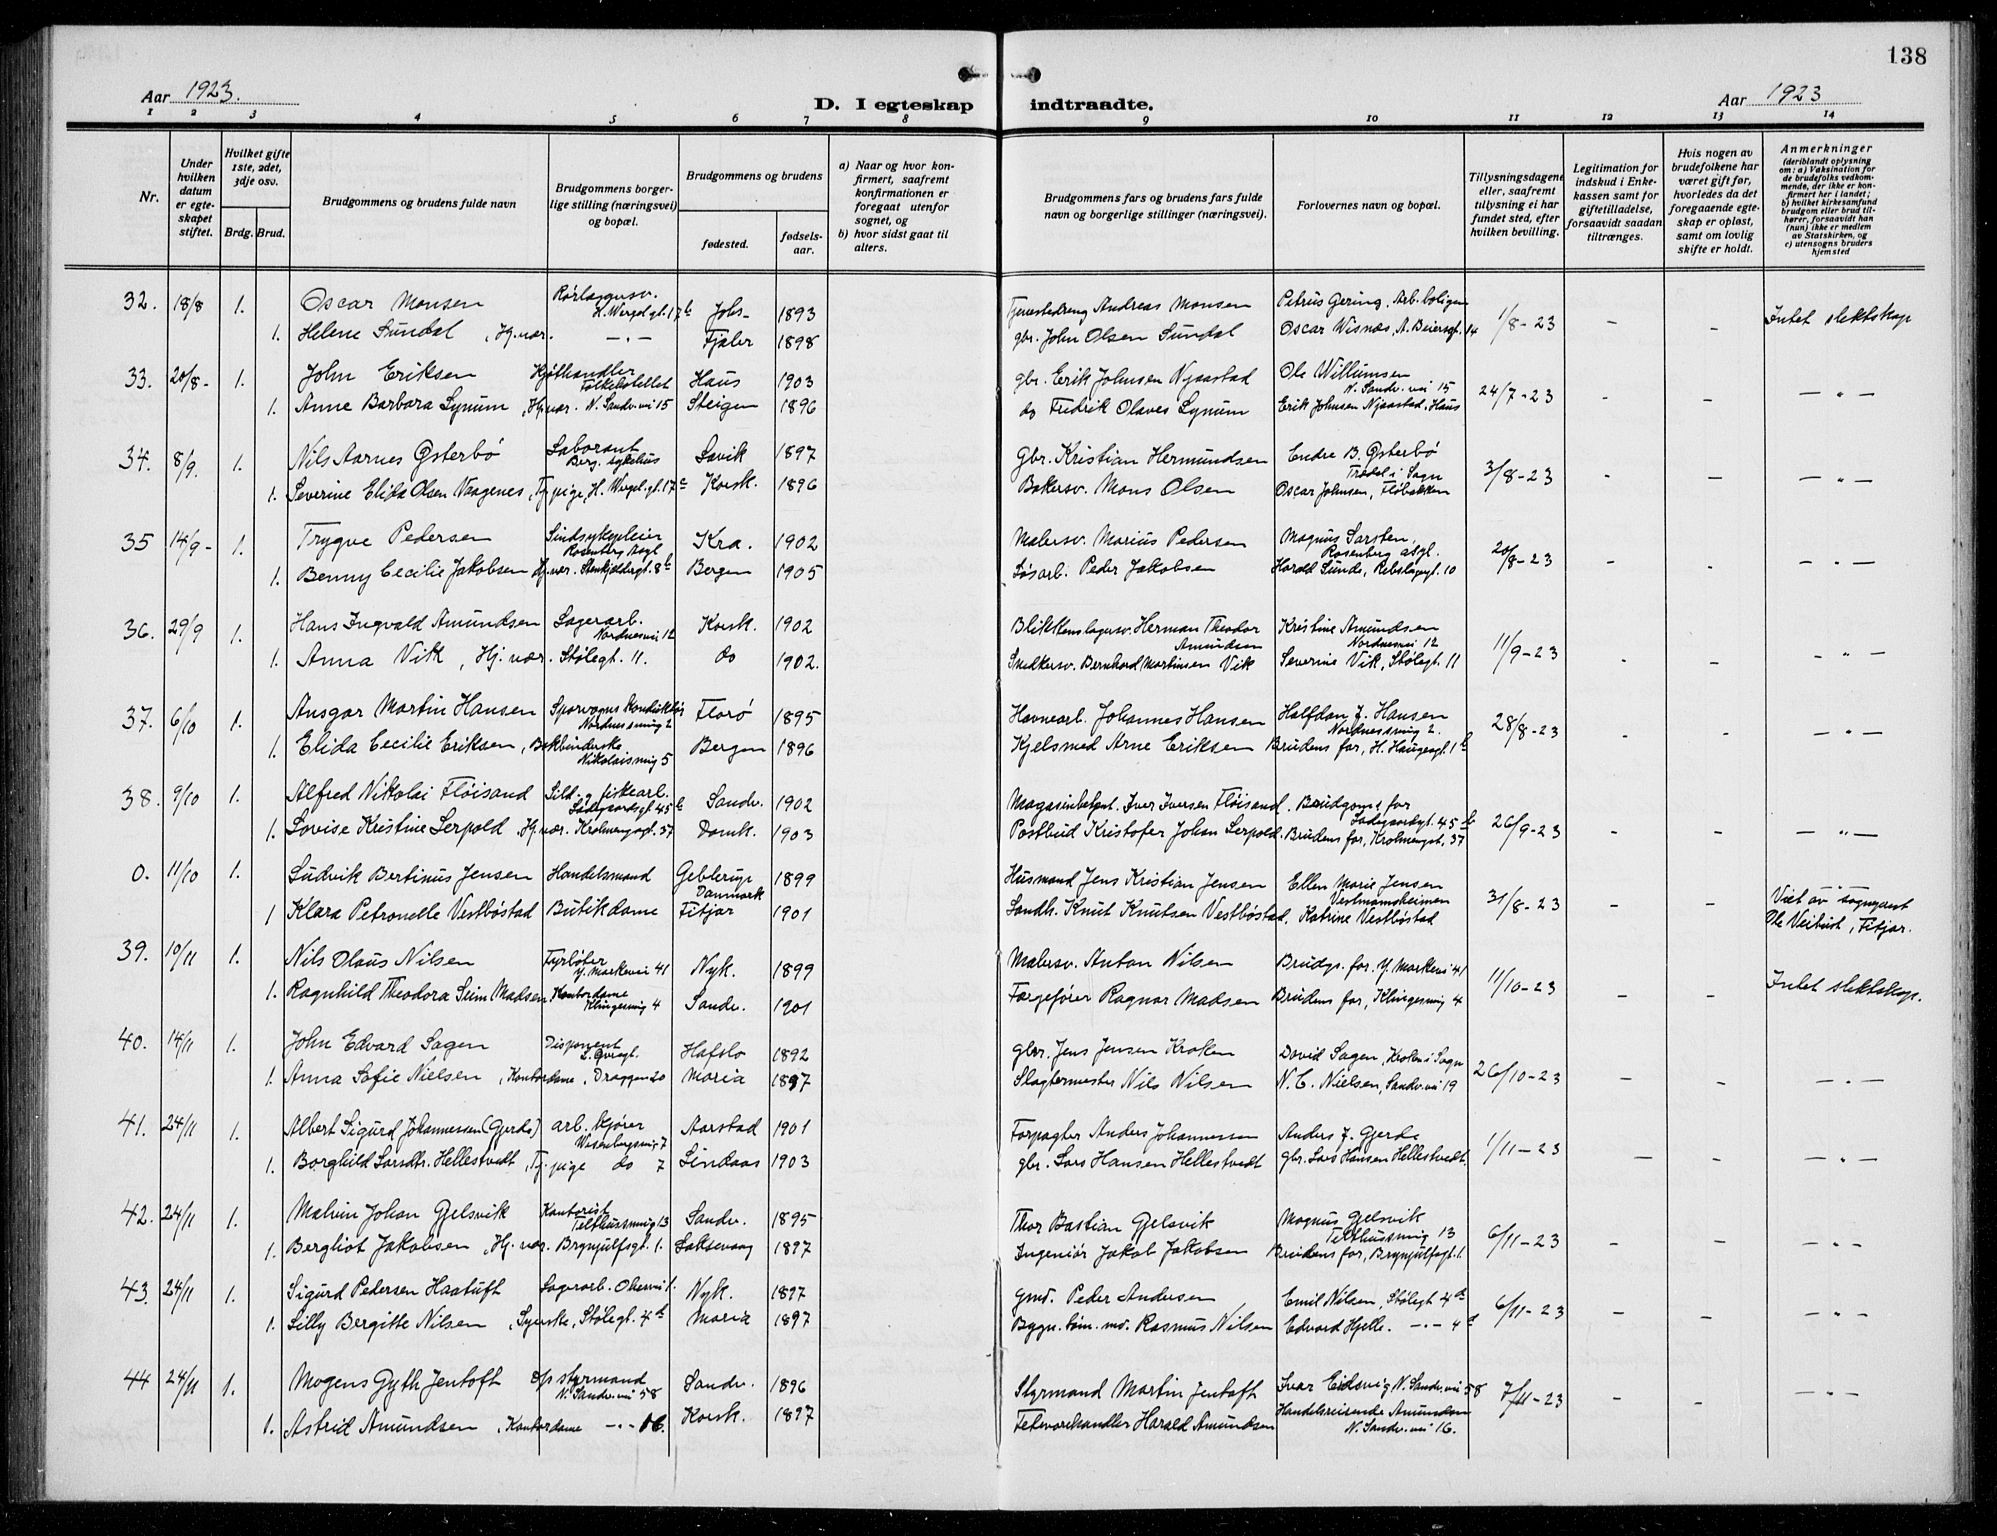 138
Aar 1923.
D. I egteskap indtraadte.
Aar 1923
1 2 3 4 5 6 7 8 9 10 11 12 13 14
Nr.
Under hvilken datum er egteskapet stiftet.
Hvilket gifte 1ste, 2det, 3dje osv.
Brdg. Brud.
Brudgommens og brudens fulde navn
Brudgommens borgerlige stilling (næringsvei) og bopæl.
Brudgommens og brudens
fødested. fødselsaar.
a) Naar og hvor konfirmert, saafremt konfirmationen er foregaat utenfor sognet, og
b) hvor sidst gaat til alters.
Brudgommens fars og brudens fars fulde navn og borgerlige stillinger (næringsvei).
Forlovernes navn og bopæl.
Tillysningsdagene eller, saafremt tillysning ei har fundet sted, efter hvilken bevilling.
Legitimation for indskud i Enkekassen samt for giftetilladelse, forsaavidt saadan tiltrænges.
Hvis nogen av brudefolkene har været gift før, hvorledes da det foregaaende egteskap er opløst, samt om lovlig skifte er holdt.
Anmerkninger
(deriblandt oplysning om: a) Vaksination for de brudefolks vedkommende, der ikke er konfirmert her i landet; b) hvilket kirkesamfund brudgom eller brud tilhører, forsaavidt han (hun) ikke er medlem av Statskirken, og c) utensogns bruders hjemsted
32. 18/8 1. Oscar Monsen Rørlæggersv. H. Wergel.gt. 17 b Johs- 1893 Tjenestedreng Andreas Monsen Petrus Gering, Arb.boligen 1/8-23 - - Intet slektskap
1. Helene Sundal, Hj.vær. -"- Fjaler 1898 gbr. John Olsen Sundal Oscar Wisnæs, A. Beiersgt. 14
33. 20/8- 1. John Eriksen Kjøthandler Folkehotellet Haus 1903 gbr. Erik Johnsen Njaastad Ole Willumsen N. Sandv.vei 15 24/7-23 - - -"-
1. Anne Barbara Synum, Hj.vær. N. Sandv.vei 15 Steigen 1896 do Fredrik Olaves Synum Erik Johnsen Njaastad, Haus
34. 8/9. 1. Nils Aarnes Østerbø Laborant Berg. sykehus Lavik 1897 Gbr. Kristian Hermundsen Endre B. Østerbø Tredal i Sogn 3/8-23 - - -"-
1. Severine Elida Olsen Vaagenes, Tj.pige, H. Wergel.gt. 17 c Korsk. 1896 Bakersv. Mons Olsen Oscar Johnsen, Fløbakken
35 14/9- 1. Trygve Pedersen Sindsykepleier Rosenberg Asyl Kra. 1902 Malersv. Marius Pedersen Magnus Larsten, Rosenberg asyl. 20/8-23 - - -"-
1. Benny Cecilie Jakobsen Hj.vær. Stenkjeldergt. 8 b Bergen 1905 Løsarb. Peder Jakobsen Harald Sunde, Rebslagergt. 10
36. 29/9 1. Hans Ingvald Amundsen Lagerarb. Nordnesvei 12 Korsk. 1902 Blikkenslagersv. Herman Theodor Amundsen Kristine Amundsen Nordnesvei 12 11/9-23 - - -"-
1. Anna Vik, Hj.vær. Stølegt. 11. do 1902. Snedkersv. Bernhard Martinsen Vik Severine Vik, Stølegt. 11
37. 6/10 1. Ansgar Martin Hansen Sporvogns Konduktør Nordnessmug 2 Florø 1895 Havnearb. Johannes Hansen Halfdan J. Hansen Nordnessmug 2. 28/8-23 - - -"-
1. Elida Cecilie Eriksen, Bokbinderske Nikolaismug 5 Bergen 1896 Kjelsmed Arne Eriksen Brudens far, H. Haugesgt. 1 b
38. 9/10 1. Alfred Nikolai Fløisand Sild- og fiskearb. Ladegaardsgt. 45 b Sandv. 1902 Magasinbetjent. Iver Iversen Fløisand. Brudgoms far Ladegaardsgt. 45 b 26/9-23 - - -"-
1. Lovise Kristine Serpold, Hj.vær. Krohnengsgt. 37 Domk. 1903 Postbud Kristofer Johan Serpold. Brudens far, Krohnengst. 37
0. 11/10 1. Ludvik Bertinus Jensen Handelsmand Danmark 1899 Husmand Jens Kristian Jensen Ellen Marie Jensen Vestmannsheimen 31/8-23 - - Viet av sogneprest
1 Klara Petronelle Vestbøstad Butikdame Fitjar 1901 Landh. Knut Knutsen Vestbøstad. Katrine Vestbøstad Ole Veibust, Fitjar.
39. 10/11 1. Nils Olaus Nilsen Fyrbøter Y. Markevei 41 Nyk. 1899 Malersv. Anton Nilsen Brudgs. far. Y. Markevei 41 11/10-23 - - Intet slektskap.
1. Ragnhild Theodora Seim Madsen Kontordame Klingesmug 4 Sandv. 1901 Færgefører Ragnar Madsen Brudens far, Klingesmug 4
40. 14/11 1. John Edvard Sagen Disponent Hafslo 1892 gbr. Jens Jensen Kroken David Sagen, Kroken i Sogn 26/10-23 - - -"-
1. Anna Sofie Nielsen, Kontordame, Dræggen 20 Maria 1897 Slagtermester Nils Nilsen N. C. Nielsen, Sandv.vei 19
41. 24/11 1. Albert Sigurd Johannessen (Gjerde) arb. kjører Wesenbergsmug 7 Aarstad 1901 Forpagter Anders Johannessen Anders J. Gjerde 1/11-23 - - -"-
1. Borghild Larsdtr. Hellestvedt, Tj.pige do 7 Lindaas 1903 gbr. Lars Hansen Hellestvedt gbr. Lars Hansen Hellestvedt.
42. 24/11 1. Malvin Johan Gjelsvik Kontorist Telthussmug 13 Sandv. 1895 Thor Bastian Gjelsvik Magnus Gjelsvik Telthussmug 13 6/11-23 - - -"-
1. Bergliot Jakobsen, Hj.vær. Brynjulfsgt. 1. Laksevaag 1897 Ingeniør Jakob Jakobsen Brudens far, Brynjulfsgt. 1
43. 24/11 1. Sigurd Pedersen Haatuft Lagerarb. Nyk. 1897 gmd. Peder Andersen Emil Nilsen, Stølegt 4 a 6/11-23 - - -"-
1. Lilly Bergitte Nilsen, Syerske, Stølegt. 4 a Maria 1897 Bygn. tøm. md. Rasmus Nilsen Edvard Hjelle. -"- 4 a
44 24/11 1. Mogens Gyth Jentoft styrmand N. Sandv.vei 58 Sandv. 1896 Styrmand Martin Jentoft Ivar Eidsvig N. Sandv.vei 58 7/11-23 - - -"-
1. Astrid Amundsen, Kontordame -"- 16. Korsk. 1897 Fetevarehandler Harald Amundsen Handelsreisende Amundsen N. Sandv.vei 16.